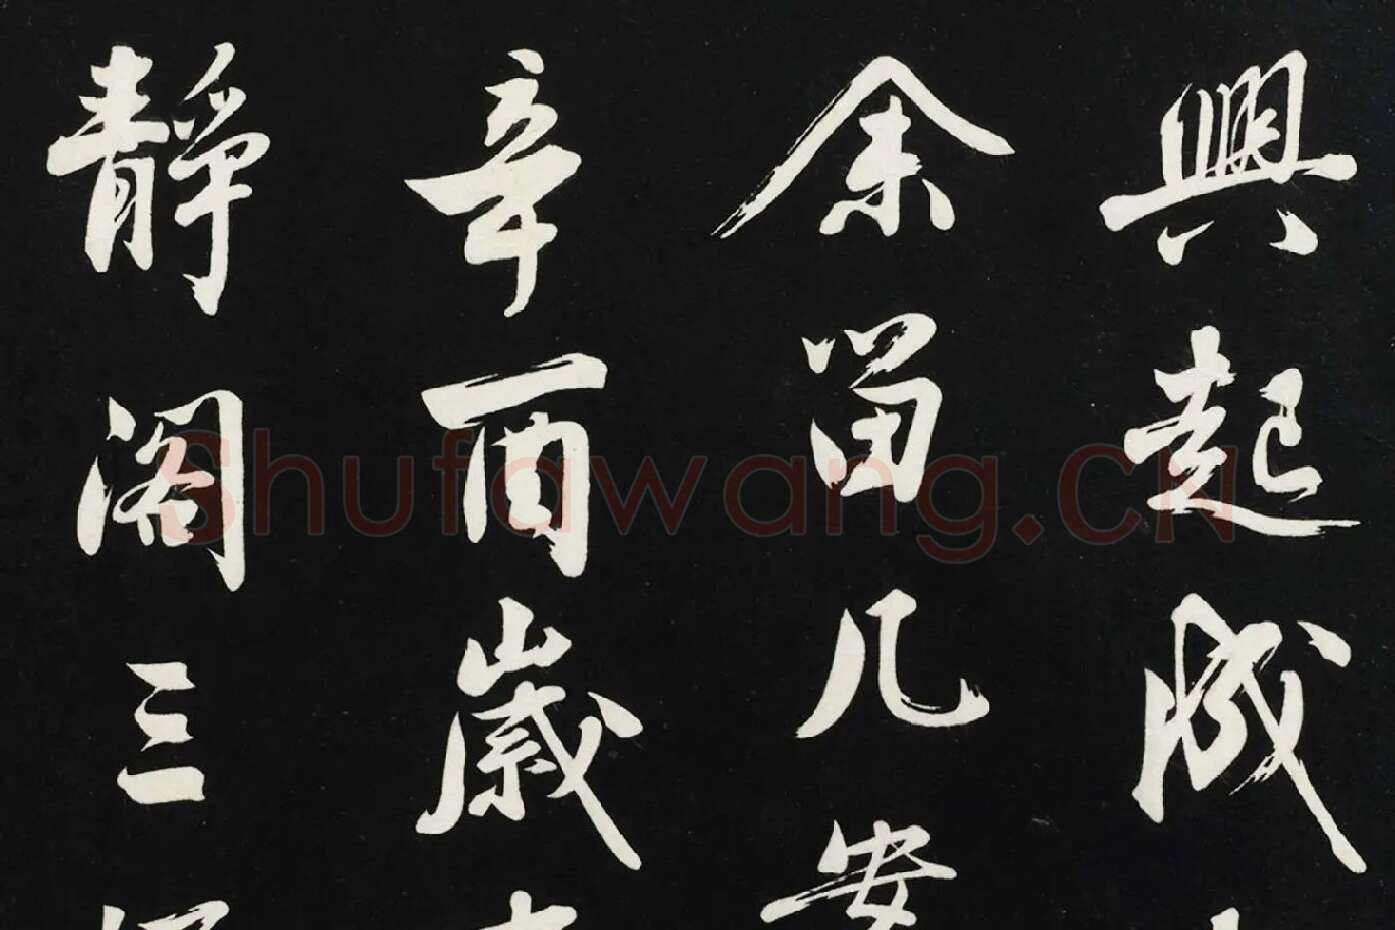 興起成
余留几安
辛酉歲
靜閣三
Shufawang.CN